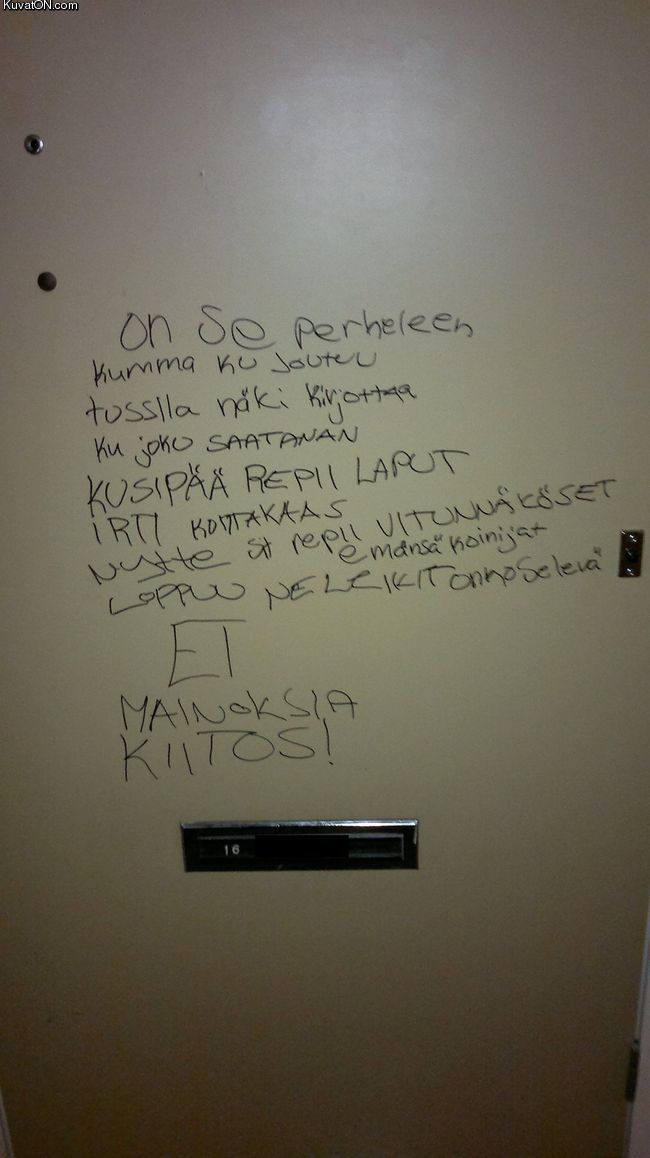 KuvatON.com
on se perheleen
kumma ku joutuu
tussilla näki kirjottaa
ku joku SAATANAN
KUSIPÄÄ REPII LAPUT
IRTI KOITAKAAS
nytte st repii VITUNNÄKÖSET
emänsäkoinijat
LOPPUU NE LEIKIT onko selevä
EI
MAINOKSIA
KIITOS!
16